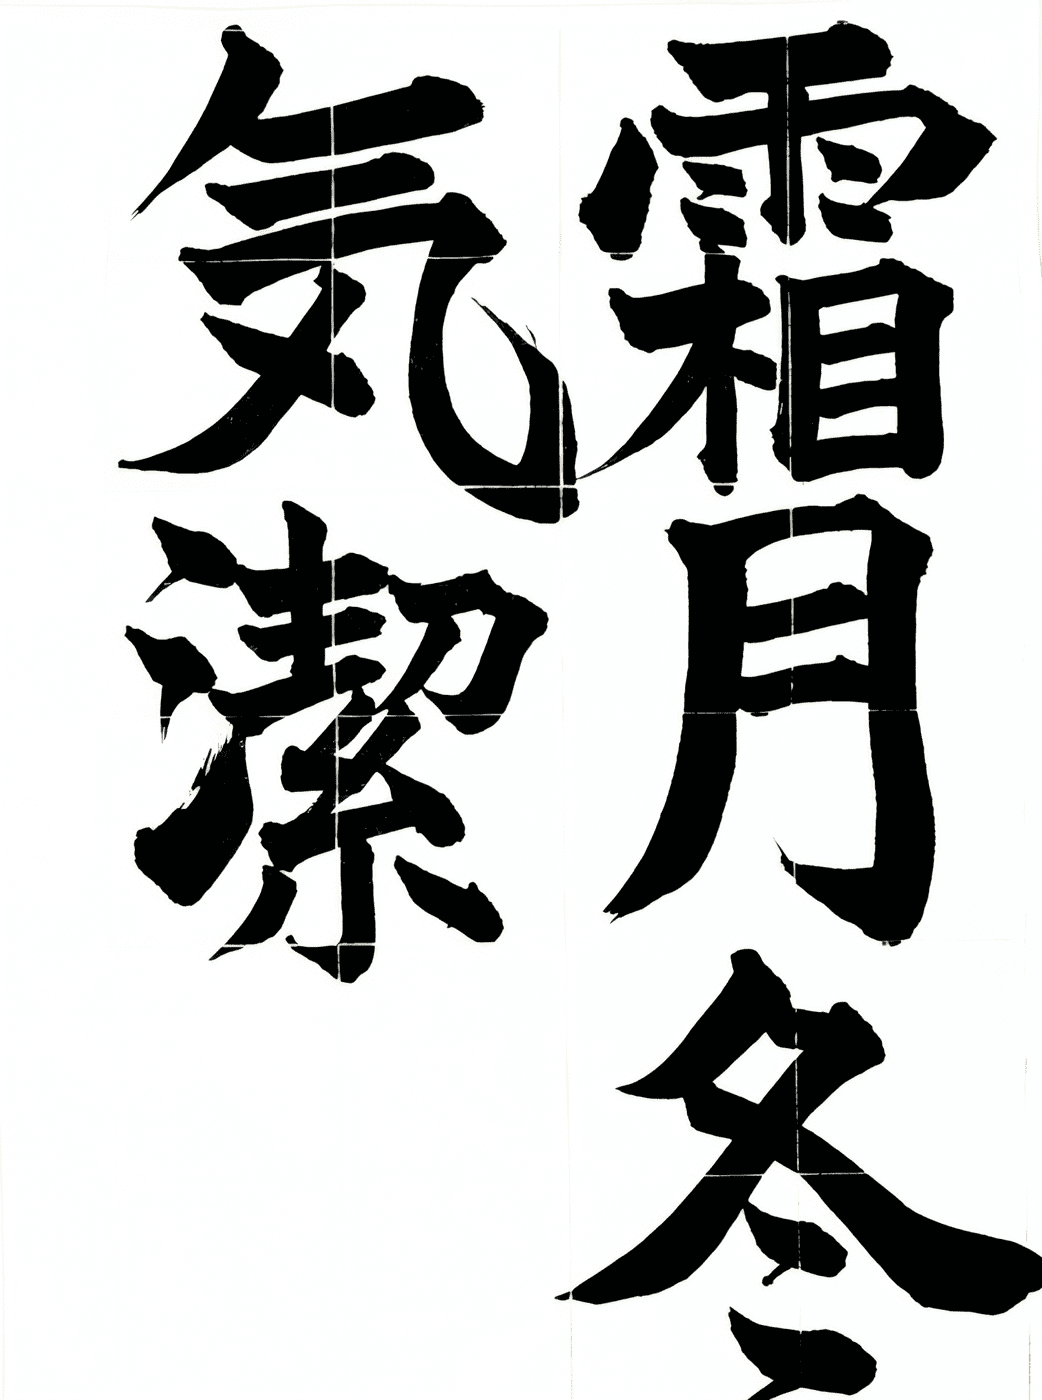 霜月冬
気潔